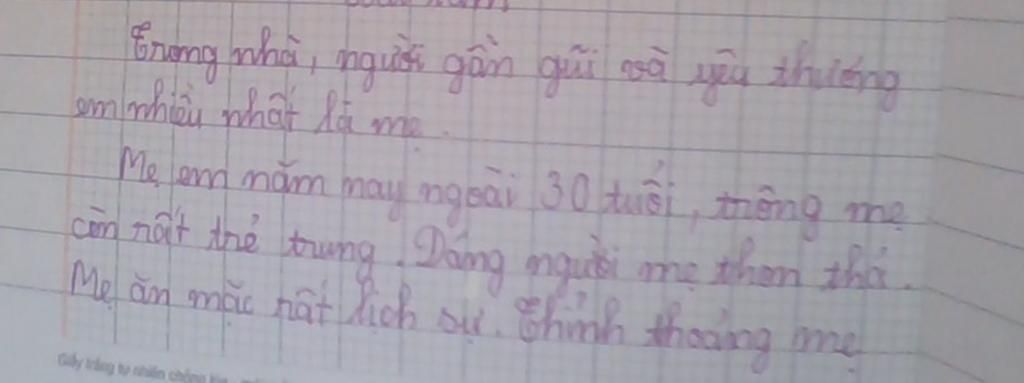 Trong nhà, người gần gũi và yêu thương
em nhiều nhất là mẹ.
Mẹ em năm nay ngoài 30 tuổi, trông mẹ
còn rất trẻ trung. Dáng người mẹ thon thả.
Mẹ ăn mặc rất lịch sự. Thỉnh thoảng mẹ
Giấy trắng tự nhiên chống